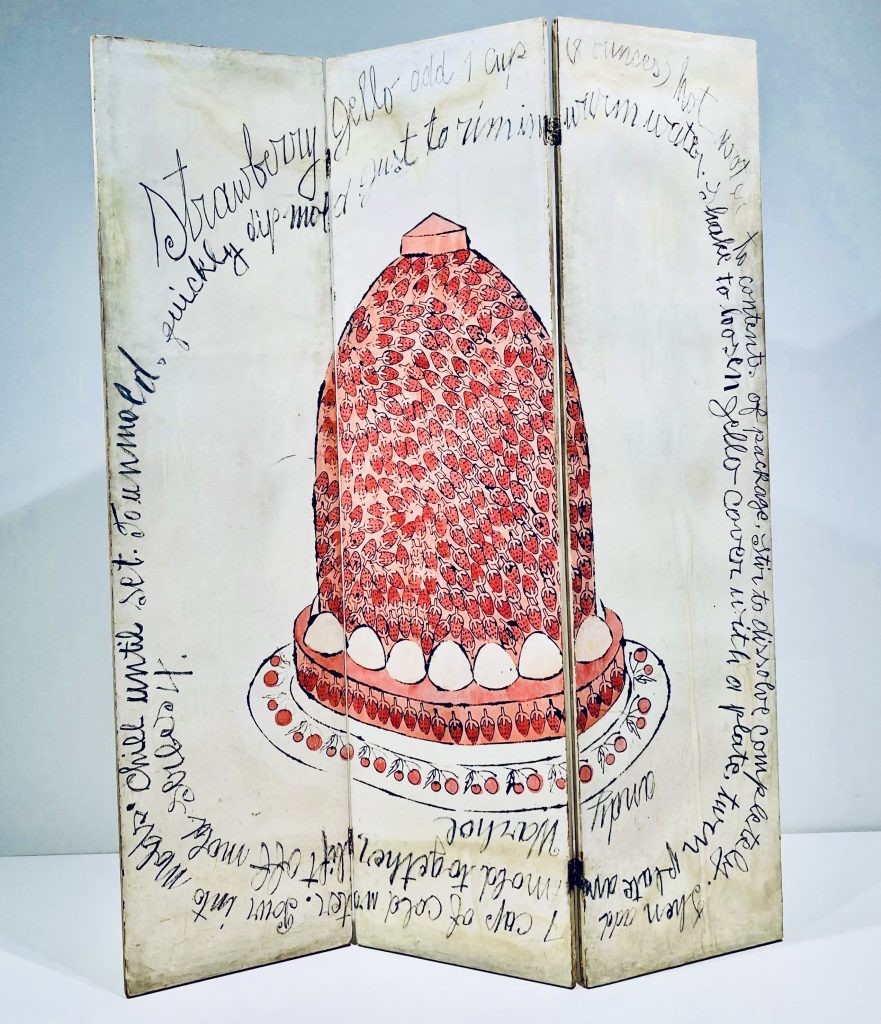 Strawberry Jello add 1 cup (8 ounces) hot water to contents of package. Stir to dissolve completely. Then add 1 cup of cold water. Pour into molds. Chill until set. To unmold, quickly dip mold just to rim in warm water. Shake to loosen jello cover with a plate, turn plate and mold together, lift off mold. Serves 4.
andy Warhol